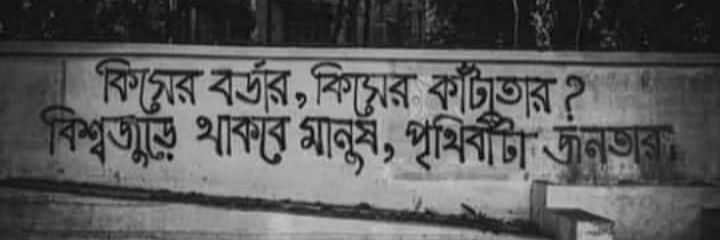 কিসের বর্ডার, কিসের কাঁটাতার?
বিশ্বজুড়ে থাকবে মানুষ, পৃথিবীটা জনতার।